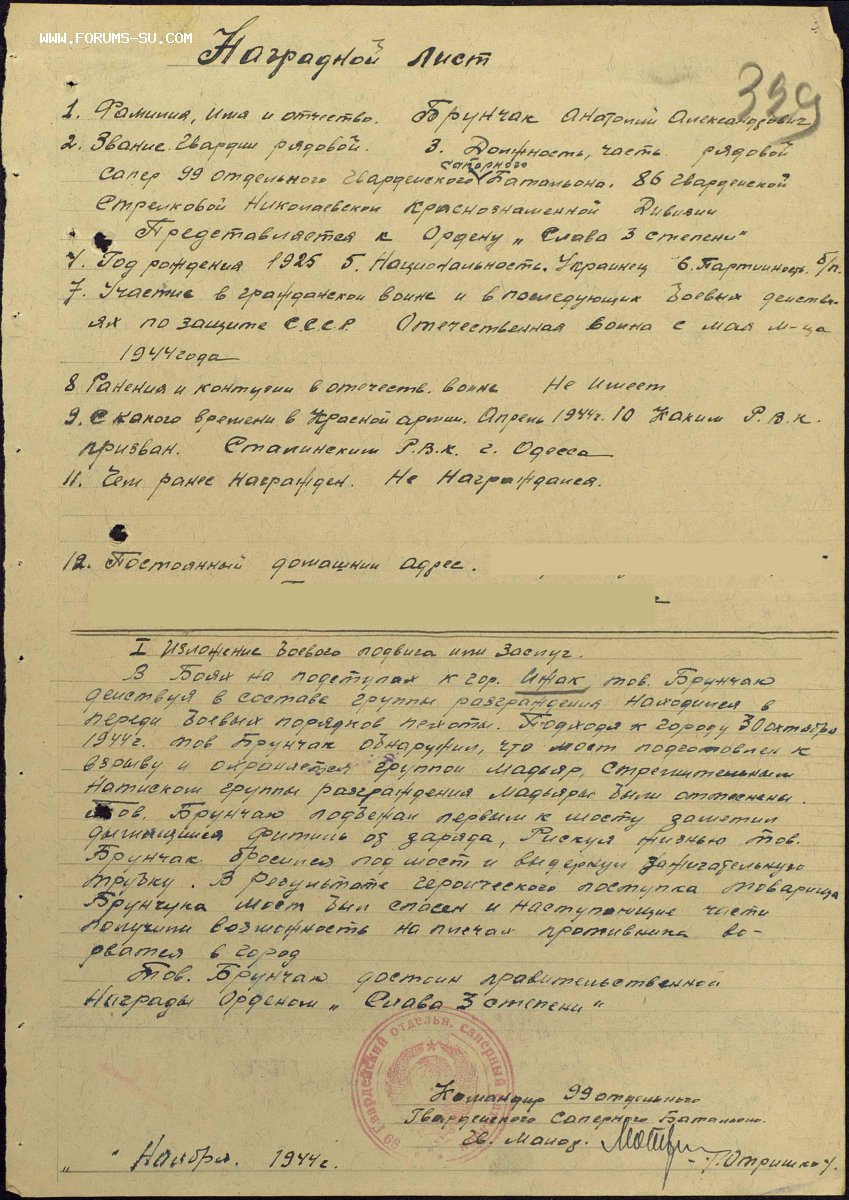 WWW.FORUMS-SU.COM
Наградной лист
399
1. Фамилия, имя и отчество. Брунчак Анатолий Александрович
2. Звание Гвардии рядовой. 3. Должность, часть рядовой
саперного
сапер 99 отдельного Гвардейского Батальона. 86 Гвардейской
Стрелковой Николаевской Краснознаменной Дивизии
Представляется к Ордену „Слава 3 степени"
4. Год рождения 1925 5. Национальность. Украинец 6. Партийность б/п.
7. Участие в гражданской войне и в последующих боевых действи-
ях по защите С.С.С.Р. Отечественная война с мая м-ца
1944 года
8. Ранения и контузии в отечеств. войне Не имеет
9. С какого времени в Красной армии. Апрель 1944г. 10 Каким Р.В.К.
призван. Сталинским Р.В.К. г. Одесса
11. Чем ранее награжден. Не Награждался.
12. Постоянный домашний адрес.
I Изложение боевого подвига или Заслуг.
В Боях на подступах к гор. Ижак тов. Брунчак
действуя в составе группы разграждения находился в
переди боевых порядков пехоты. Подходя к городу 30 октября
1944г. тов Брунчак обнаружил, что мост подготовлен к
взрыву и охраняется группой Мадьяр, Стремительным
натиском группы разграждения Мадьяры были оттеснены.
Тов. Брунчак подъехал первым к мосту заметил
дымящийся фитиль от заряда, Рискуя жизнью тов.
Брунчак бросился под мост и выдернул зажигательную
трубку. В результате героического поступка товарища
Брунчука мост был спасен и наступающие части
получили возможность на плечах противника во-
рватся в город
Тов. Брунчак достоин правительственной
Награды Орденом „Слава 3 степени"
99 Гвардейский отдельн. саперный
Командир 99 отдельного
Гвардейского Саперного Батальона.
Гв. Майор.
/Отришко/.
„ " Ноября. 1944г.